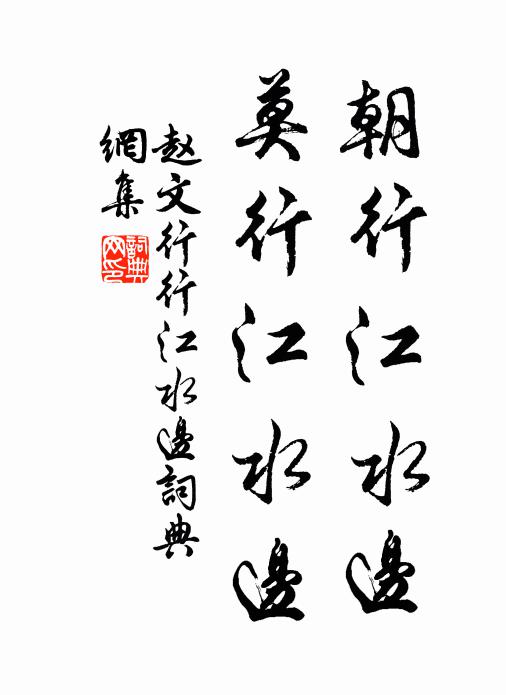 朝行江水邊
莫行江水邊
赵文行行江水邊詞典
網集
詞典
网印